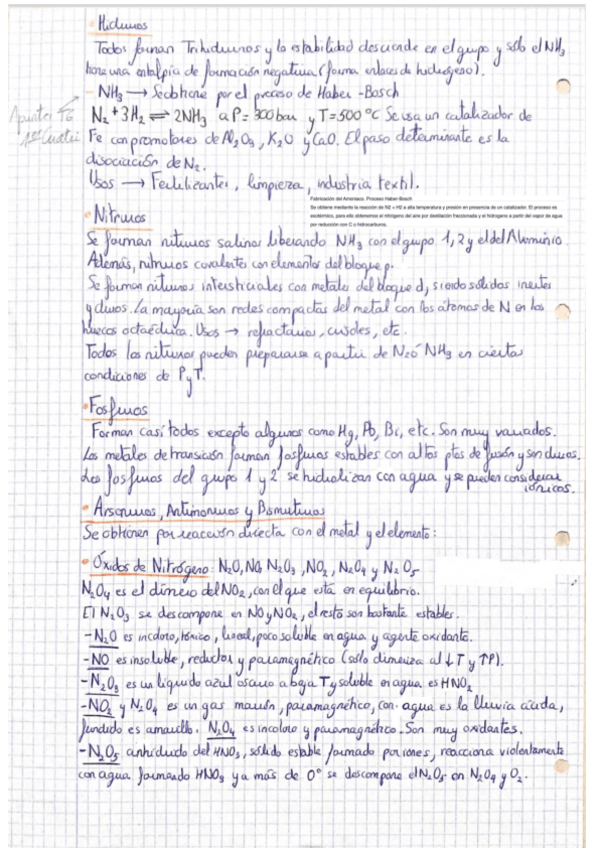 Hidruros
Todos forman Trihidruros y la estabilidad desciende en el grupo y sólo el NH3
tiene una entalpía de formación negativa (forma enlaces de hidrógeno).
- NH3 → Se obtiene por el proceso de Haber-Bosch
Apuntes T6
1er Cuatri
N2 + 3H2 ⇌ 2NH3 a P = 300 bar y T = 500 °C Se usa un catalizador de
Fe con promotores de Al2O3, K2O y CaO. El paso determinante es la
disociación de N2.
Usos → Fertilizantes, limpieza, industria textil.
Fabricación del Amoniaco. Proceso Haber-Bosch
Se obtiene mediante la reacción de N2 + H2 a alta temperatura y presión en presencia de un catalizador. El proceso es
exotérmico, para ello obtenemos el nitrógeno del aire por destilación fraccionada y el hidrogeno a partir del vapor de agua
por reducción con C o hidrocarburos.
Nitruros
Se forman nitruros salinos liberando NH3 con el grupo 1, 2 y el del Aluminio
Además, nitruros covalentes con elementos del bloque p.
Se forman nitruros intersticiales con metales del bloque d, siendo sólidos inertes
y duros. La mayoría son redes compactas del metal con los átomos de N en los
huecos octaédrica. Usos → refractarios, crisoles, etc.
Todos los nitruros pueden prepararse a partir de N2 ó NH3 en ciertas
condiciones de P y T.
Fosfuros
Forman casi todos excepto algunos como Hg, Pb, Bi, etc. Son muy variados.
Los metales de transición forman fosfuros estables con altos ptos de fusión y son duros.
Los fosfuros del grupo 1 y 2 se hidrolizan con agua y se pueden considerar
iónicos.
Arsoniuros, Antimoniuros y Bismutiuros
Se obtienen por reacción directa con el metal y el elemento:
Óxidos de Nitrógeno: N2O, NO, N2O3, NO2, N2O4 y N2O5
N2O4 es el dímero del NO2, con el que está en equilibrio.
El N2O3 se descompone en NO y NO2, el resto son bastante estables.
- N2O es incoloro, tóxico, lineal, poco soluble en agua y agente oxidante.
- NO es insoluble, reductor y paramagnético (sólo dimeriza al ↓T y ↑P).
- N2O3 es un líquido azul oscuro a baja T y soluble en agua es HNO2
- NO2 y N2O4 es un gas marrón, paramagnético, con agua es la lluvia ácida,
fundido es amarillo. N2O4 es incoloro y paramagnético. Son muy oxidantes.
- N2O5 anhídrido del HNO3, sólido estable formado por iones, reacciona violentamente
con agua formando HNO3 y a más de 0° se descompone el N2O5 en N2O4 y O2.